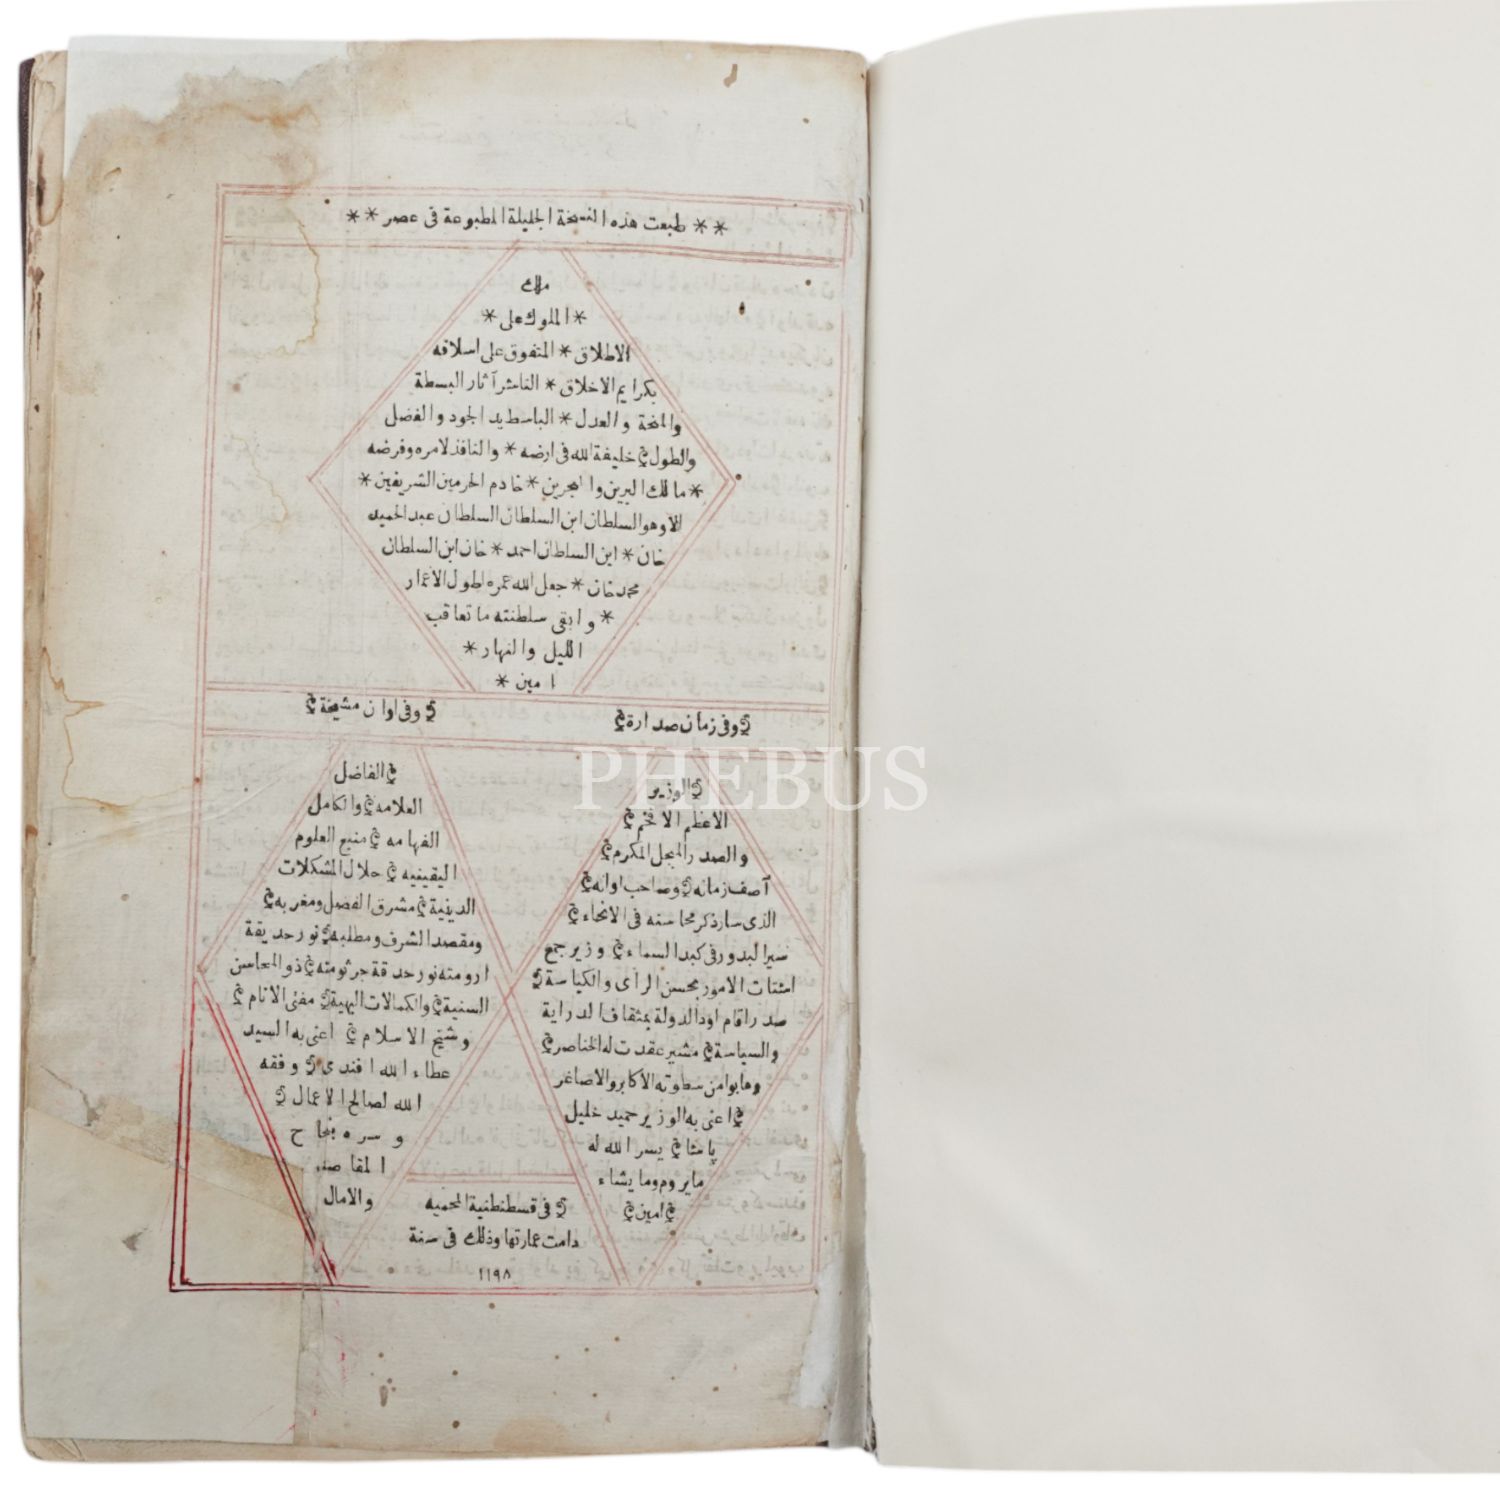 ** طبعت هذه النسخة الجليلة المطبوعة فى عصر **
ملك
* الملوك على *
الاطلاق * المتفوق على اسلافه
بكرايم الاخلاق * الناشر آثار البسطة
والمنحة والعدل * الباسط يد الجود والفضل
والطول خليفة الله فى ارضه * والنافذ لامره وفرضه
* مالك البرين والبحرين * خادم الحرمين الشريفين *
الا وهو السلطان ابن السلطان السلطان عبد الحميد
خان * ابن السلطان احمد * خان ابن السلطان
محمد خان * جعل الله عمره اطول الاعمار
* وابقى سلطنته ما تعاقب
الليل والنهار *
امين *
وفى زمان صدارة
الوزير
الاعظم الافخم
والصدر المبجل المكرم
آصف زمانه وصاحب اوانه
الذى سار ذكر محاسنه فى الانحاء
سير البدور فى كبد السماء وزير جمع
اشتات الامور بحسن الرأى والكياسة
صدر اقام اود الدولة بمثقاف الدراية
والسياسة مشير عقدت له الخناصر
وهابوا من سطوته الاكابر والاصاغر
اعنى به الوزير حميد خليل
پاشا يسر الله له
ما يروم وما يشاء
امين
وفى اوان مشيخة
الفاضل
العلامه والكامل
الفهامه منبع العلوم
اليقينيه حلال المشكلات
الدينية مشرق الفضل ومغربه
ومقصد الشرف ومطلبه نور حديقة
ارومته نور حدقة جرثومته ذو المحاسن
السنية والكمالات البهية مفتى الانام
وشيخ الاسلام اعنى به السيد
عطاء الله افندى وفقه
الله لصالح الاعمال
وسره بنجاح
المقاصد
والامال
فى قسطنطنية المحميه
دامت عمارتها وذلك فى سنة
١١٩٨
PHEBUS